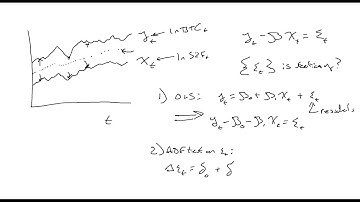 y_t ← ln BTC_t
x_t ← ln S2F_t
t
y_t - β x_t = ε_t
{ε_t} is stationary?
1) OLS: y_t = β_0 + β_1 x_t + ε_t
residuals
⟹ y_t - β_0 - β_1 x_t = ε_t
2) ADF test on ε_t:
Δε_t = δ_0 + δ